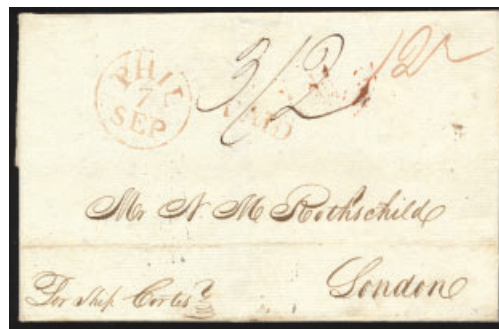 PHIL
7
SEP
3/2
PAID
12
Mr N. M Rothschild
London
For Ship Cortes